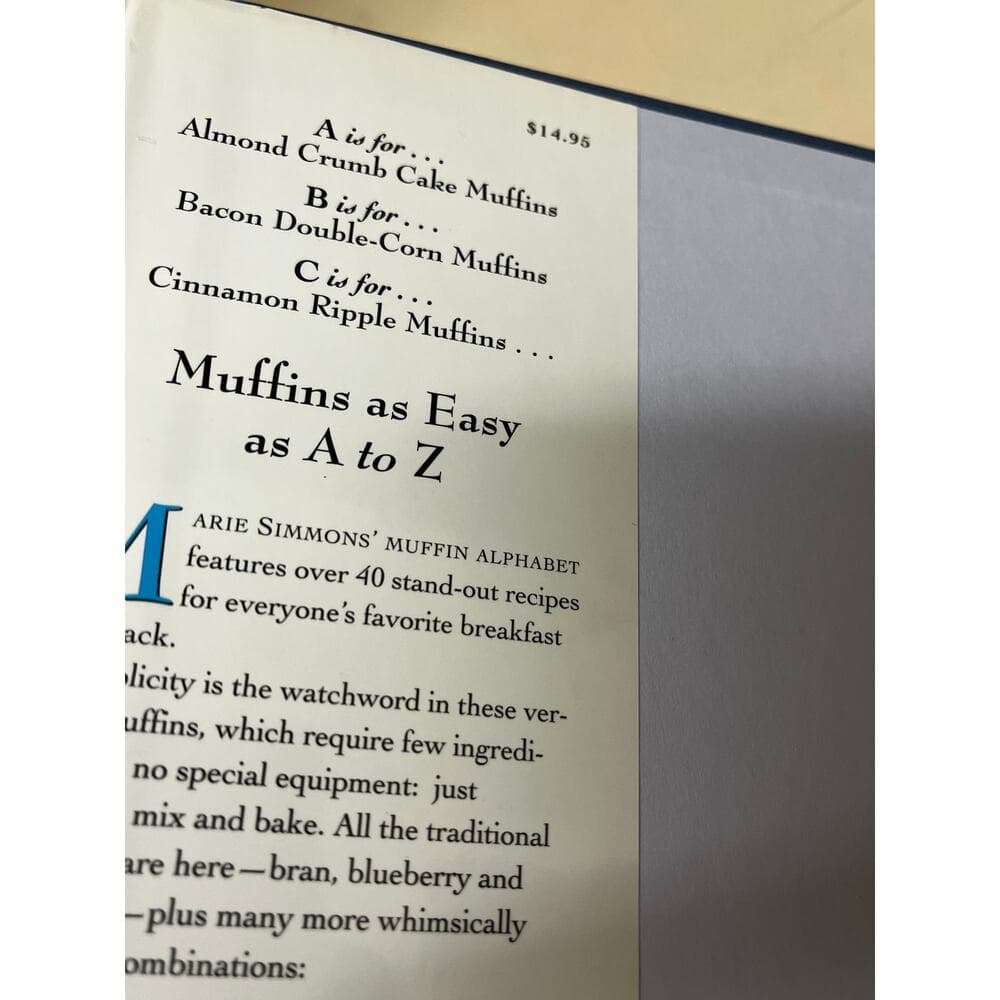 $14.95
A is for...
Almond Crumb Cake Muffins
B is for...
Bacon Double-Corn Muffins
C is for...
Cinnamon Ripple Muffins...
Muffins as Easy
as A to Z
MARIE SIMMONS' MUFFIN ALPHABET
features over 40 stand-out recipes
for everyone's favorite breakfast
ack.
licity is the watchword in these ver-
uffins, which require few ingredi-
no special equipment: just
mix and bake. All the traditional
are here—bran, blueberry and
—plus many more whimsically
ombinations: